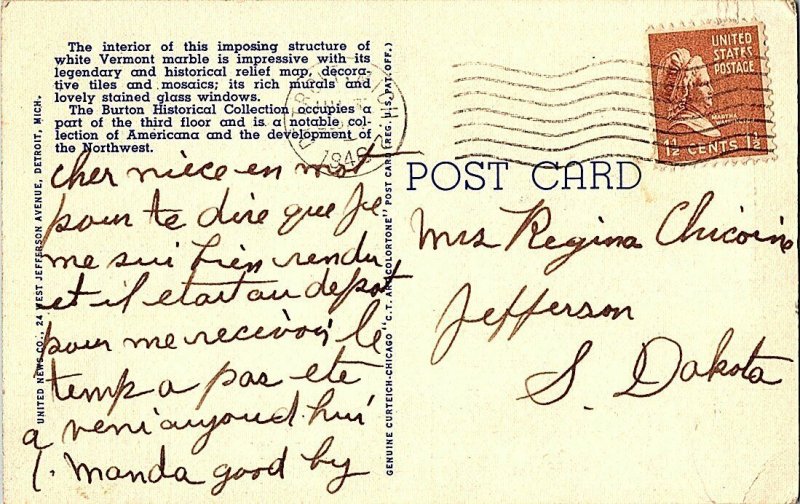 The interior of this imposing structure of
white Vermont marble is impressive with its
legendary and historical relief map, decora-
tive tiles and mosaics; its rich murals and
lovely stained glass windows.
The Burton Historical Collection occupies a
part of the third floor and is a notable col-
lection of Americana and the development of
the Northwest.
UNITED NEWS CO., 24 WEST JEFFERSON AVENUE, DETROIT, MICH.
cher niece en mot
pour te dire que Je
me sui bien rendu
et il etait au depot
pour me recevoir le
temp a pas ete
a veni aujoud hui
Manda good by
GENUINE CURTEICH-CHICAGO "C.T. ART-COLORTONE" POST CARD (REG. U.S. PAT. OFF.)
1946
UNITED
STATES
POSTAGE
MARTHA
WASHINGTON
1½ CENTS 1½
POST CARD
Mrs Regina Chicoine
Jefferson
S. Dakota